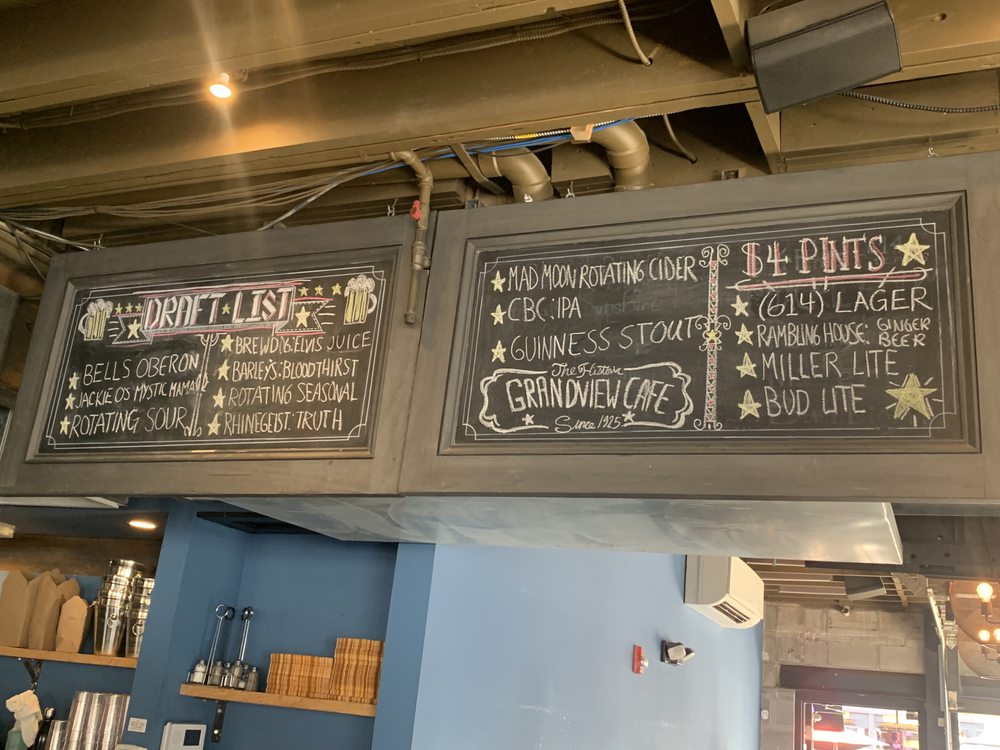 DRAFT LIST
BELLS OBERON
JACKIE OS MYSTIC MAMA
ROTATING SOUR
BREWDOG: ELVIS JUICE
BARLEY'S: BLOODTHIRST
ROTATING SEASONAL
RHINEGEIST: TRUTH
MAD MOON ROTATING CIDER
CBC: IPA
GUINNESS STOUT
The
GRANDVIEW CAFE
Since 1925
$4 PINTS
(614) LAGER
RAMBLING HOUSE: GINGER
BEER
MILLER LITE
BUD LITE